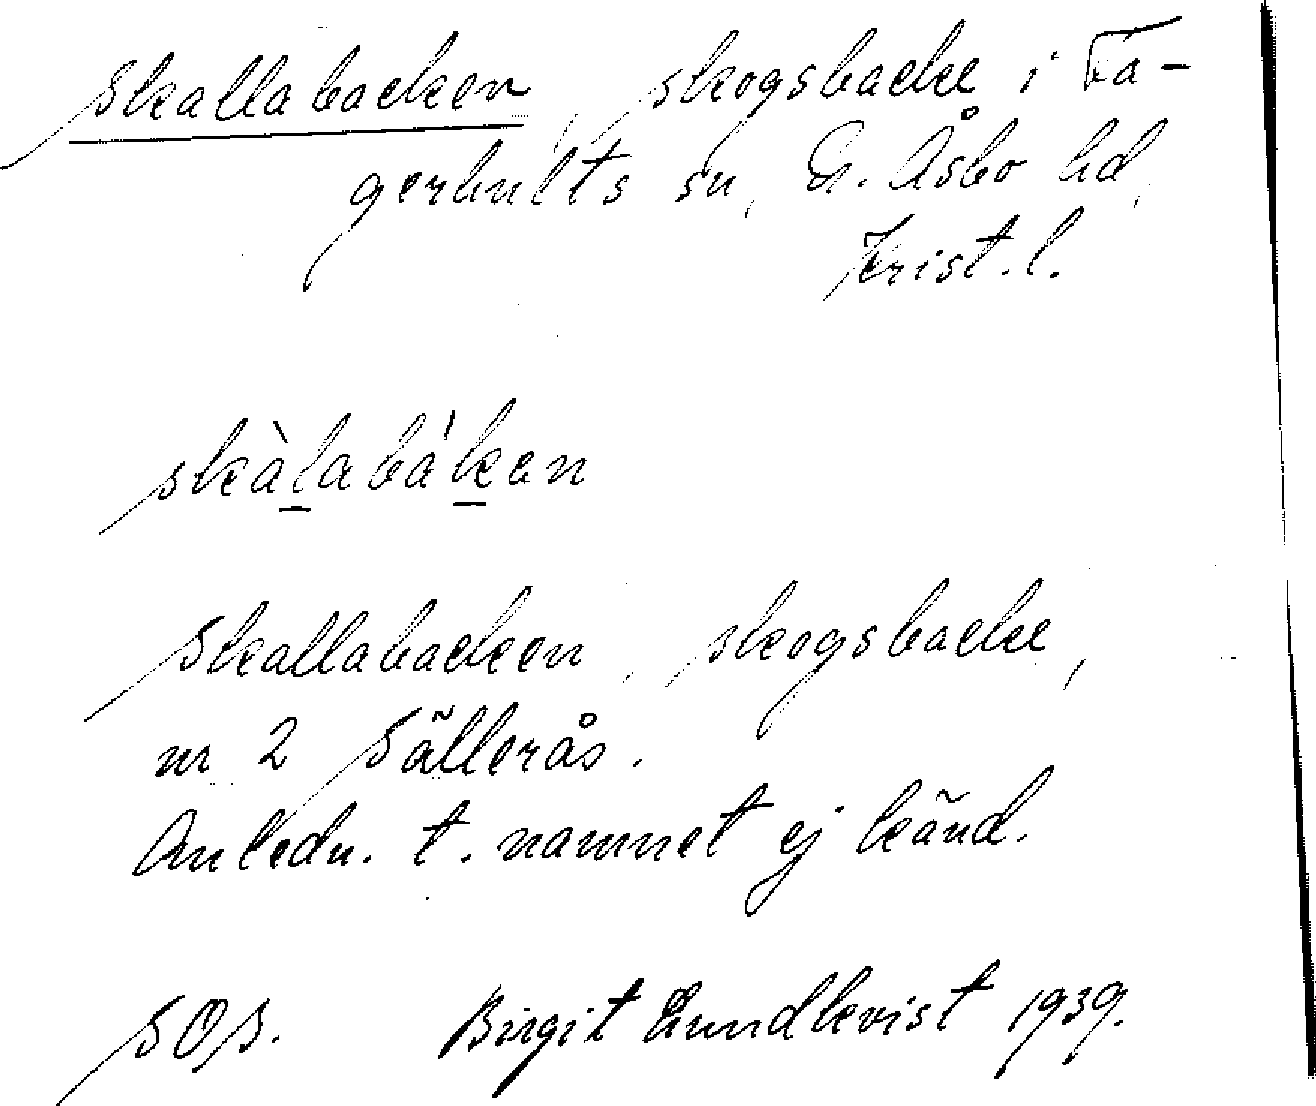 Skallabacken, skogsbacke i Fa-
gerhults sn, G. Åsbo hd,
Krist. l.
skàl̲abák̲en
Skallabacken, skogsbacke,
nr 2 Sällerås.
Anledn. t. namnet ej känd.
SOS. Birgit Lundkvist 1939.